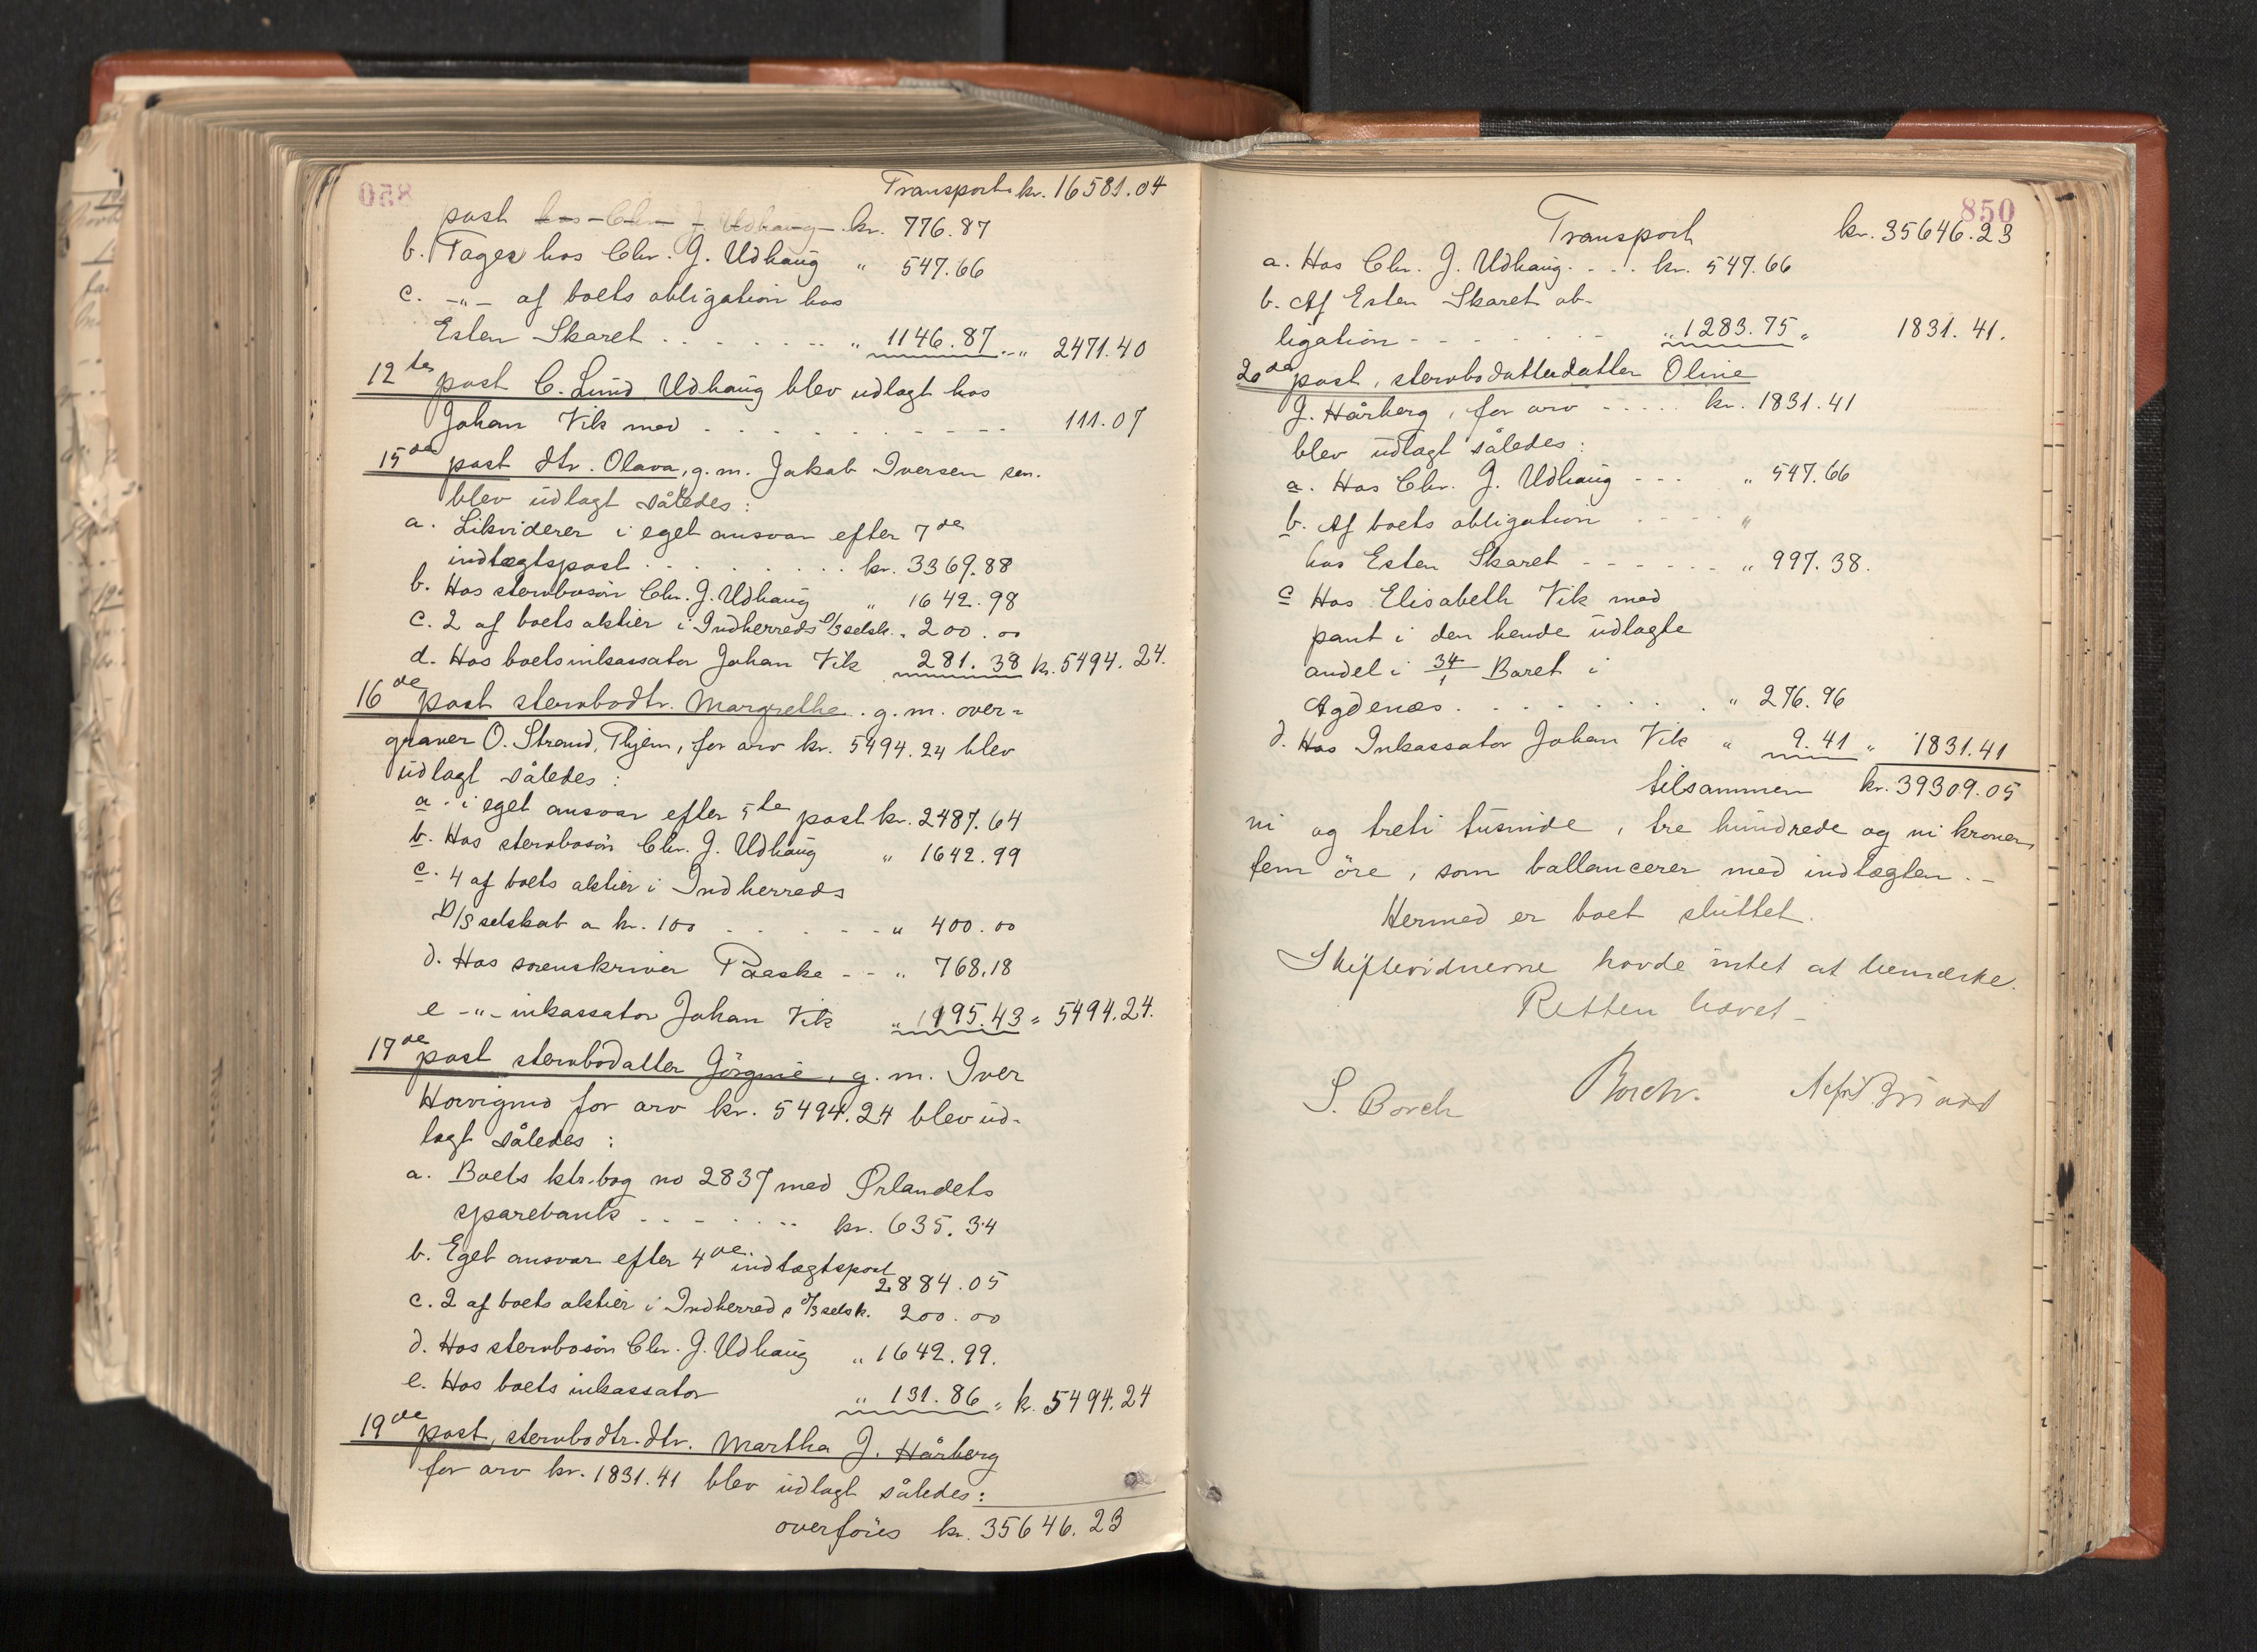 Transport kr. 16581.04
post hos Chr. J. Udhaug kr. 776.87
b. Tages hos Chr. J. Udhaug " 547.66
c. -"- af boets obligation hos
Esten Skaret . . . . . . . " 1146.87 - " 2471.40
12te post C. Lund Udhaug blev udlagt hos
Johan Vik med . . . . . . . . . . 111.07
15de post dtr. Olava, g. m. Jakob Iversen sen.
blev udlagt således:
a. Likviderer i eget ansvar efter 7de
indtægtspost . . . . . . . . kr. 3369.88
b. Hos stervbosön Chr. J. Udhaug " 1642.98
c. 2 af boets aktier i Indherreds D/S selsk. " 200.00
d. Hos boets inkassator Johan Vik 281.38 kr. 5494.24.
16de post sterbodtr. Margrethe g. m. over-
graver O. Strand, Thjem, for arv kr. 5494.24 blev
udlagt således:
a. i eget ansvar efter 5te post kr. 2487.64
b. Hos sterbosön Chr. J. Udhaug " 1642.99
c. 4 af boets aktier i Indherreds
D/S selskab a kr. 100 . . . . - - " 400.00
d. Hos sorenskriver Paaske - - " 768.18
e -"- inkassator Johan Vik " 195.43 = 5494.24.
17de post sterbodatter Jörgine, g. m. Iver
Hovigmo for arv kr. 5494.24 blev ud-
lagt således:
a. Boets ktr. bog no 2837 med Ørlandets
sparebank . . - . . . . kr. 635.34
b. Eget ansvar efter 4de indtægtspost
2884.05
c. 2 af boets aktier i Indherreds D/S selsk. 200.00
d. Hos sterbosön Chr. J. Udhaug " 1642.99.
e. Hos boets inkassator " 131.86 = kr. 5494.24
19de post, sterbodtr. dtr. Martha J. Hårberg
for arv kr. 1831.41 blev udlagt således:
overföres kr. 35646.23
850
Transport kr. 35646.23
a. Hos Chr. J. Udhaug . - . . kr. 547.66
b. Af Esten Skaret ob-
ligation - - - - . . - - " 1283.75 " 1831.41.
20de post, sterbodatterdatter Oline
J. Hårberg, for arv - . . . . kr. 1831.41
blev udlagt således:
a. Hos Chr. J. Udhaug - - - " 547.66
b. Af boets obligation . - - - "
hos Esten Skaret - - - - . . - " 997.38.
c Hos Elisabeth Vik med
pant i den hende udlagte
andel i 34/1 Baret i
Agdenæs . . . . . . . . " 276.96
d. Hos Inkassator Johan Vik " 9.41 " 1831.41
tilsammen kr. 39309.05
ni og treti tusinde, tre hundrede og ni kroner,
fem öre, som ballancerer med indtægten. -
Hermed er boet sluttet.
Skiftevidnerne havde intet at bemærke.
Retten hævet -
S. Borch Borch.